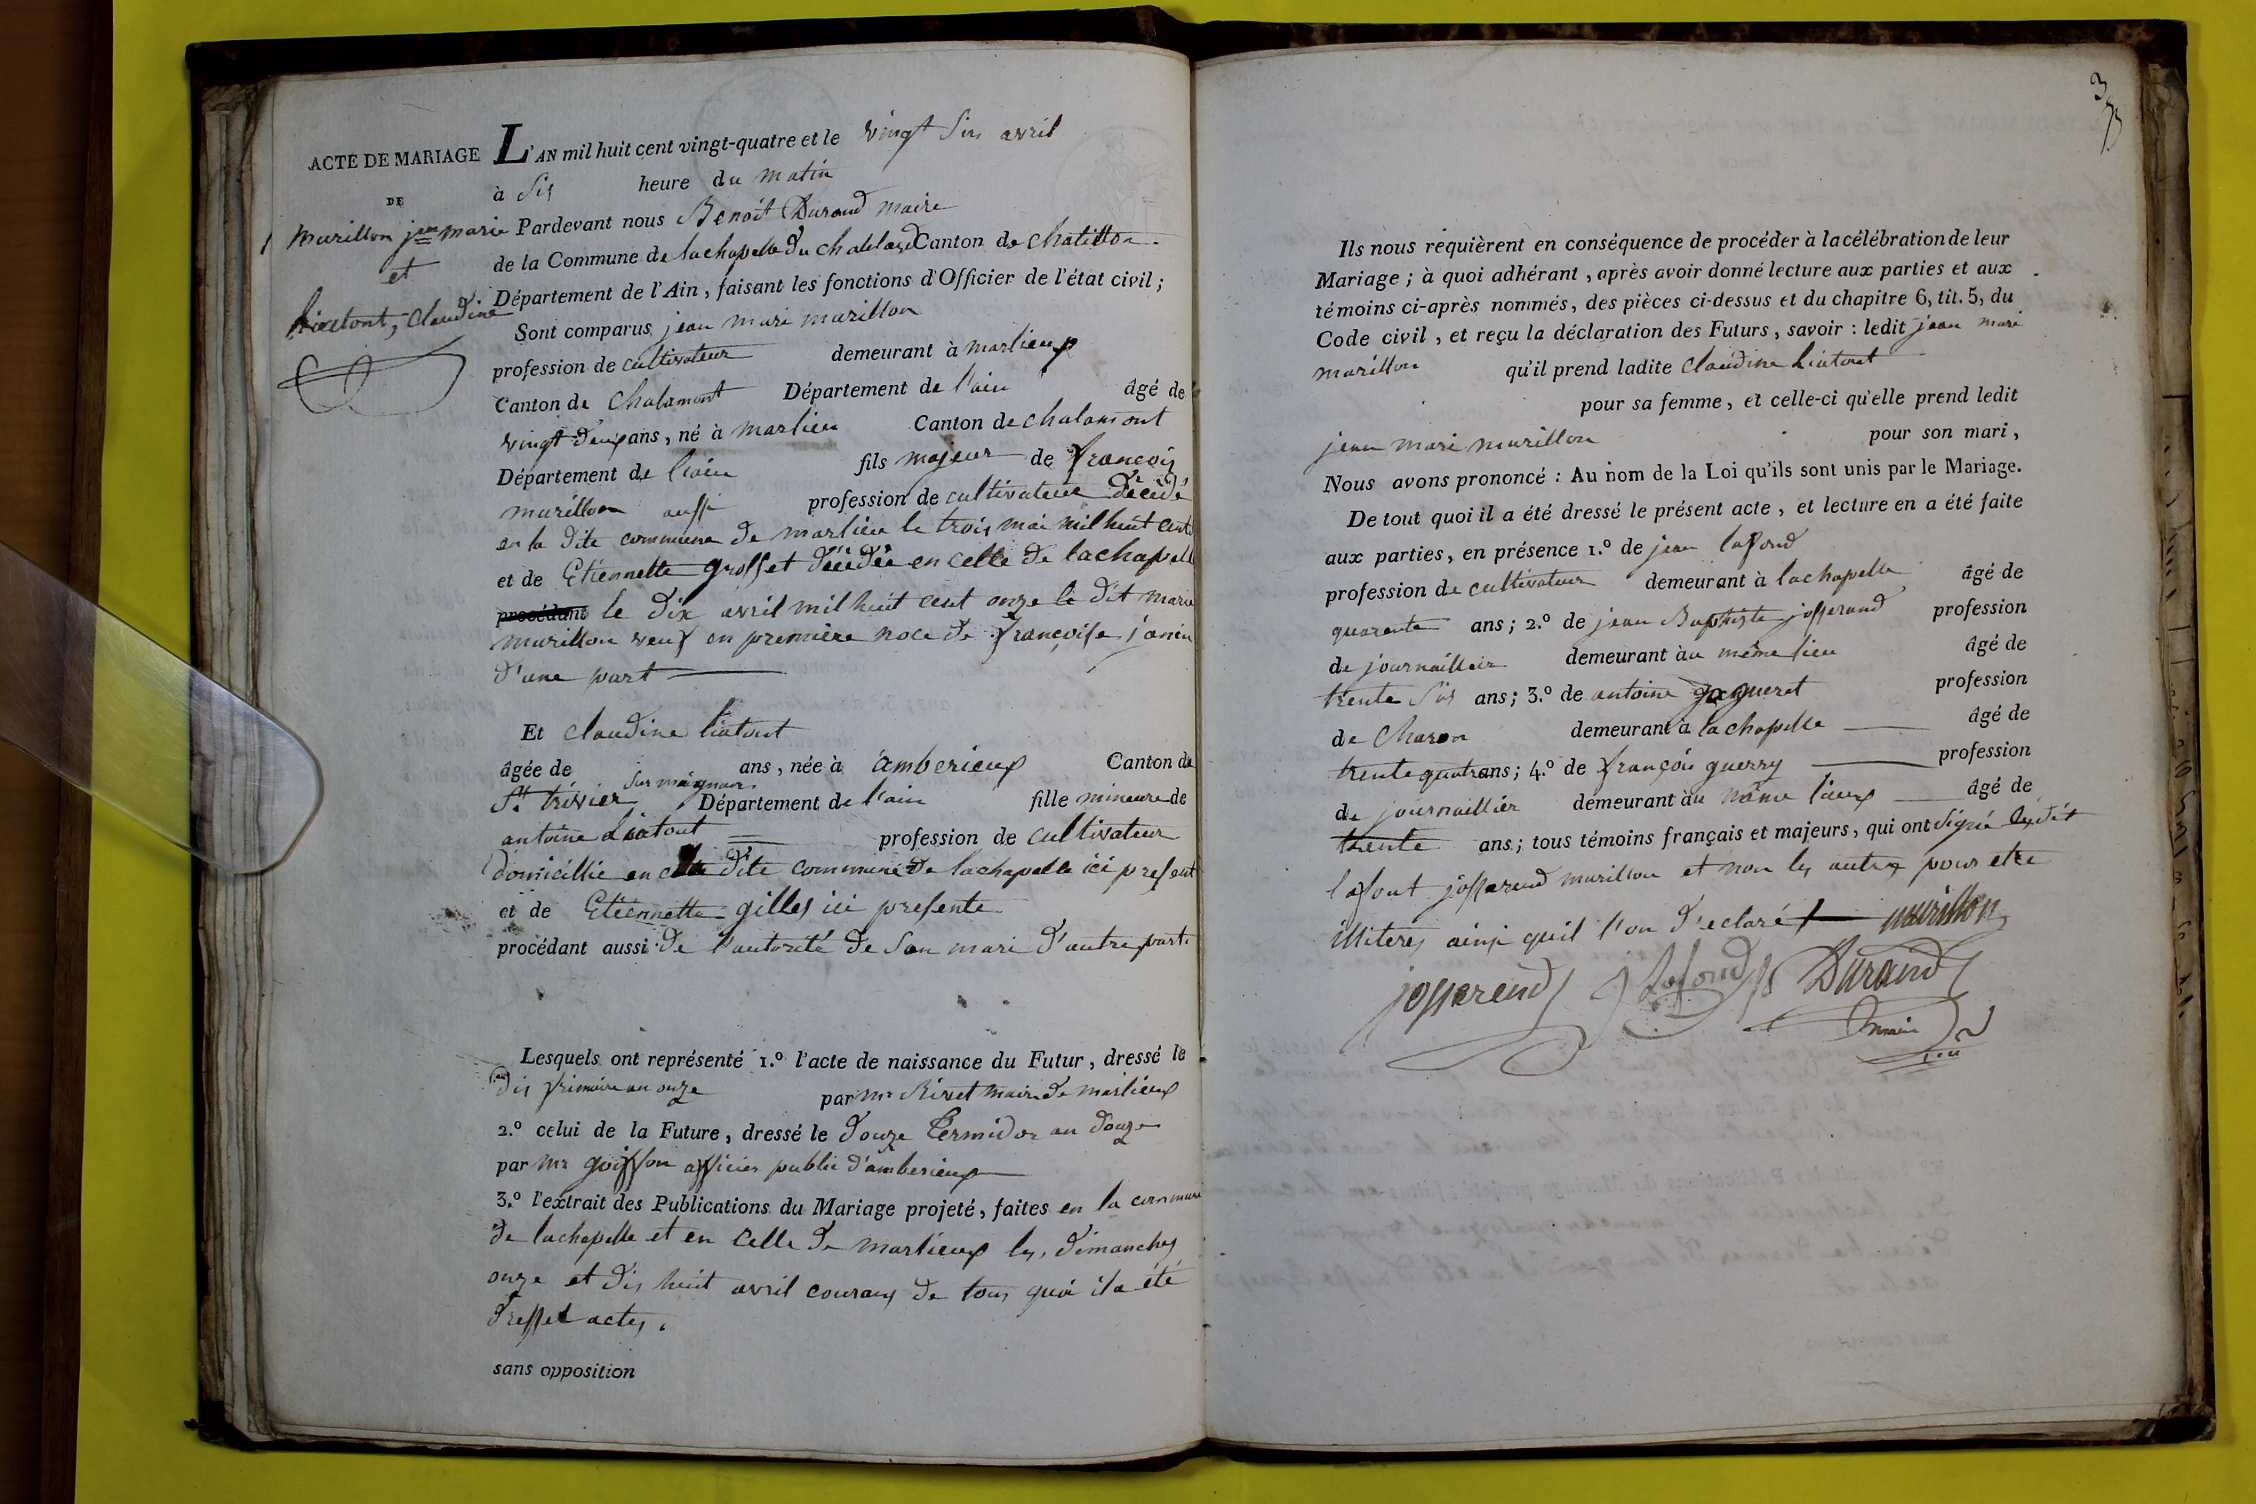 ACTE DE MARIAGE
DE
1 Murillon jean marie
et
Liatont, Claudine
L'AN mil huit cent vingt-quatre et le vingt six avril
à Six heure du matin
Pardevant nous Benoit Durand maire
de la Commune de lachapelle du chatelard Canton de chatillon
Département de l'Ain, faisant les fonctions d'Officier de l'état civil;
Sont comparus jean mari murillon
profession de cultivateur demeurant à marlieux
Canton de Chalamont Département de l'ain âgé de
vingt deux ans, né à marlieu Canton de chalamont
Département de l'ain fils majeur de françois
murillon aussi profession de cultivateur décédé
en la dite commune de marlieu le trois mai mil huit cent
et de Etiennette grosset décédée en celle de lachapelle
procédant le dix avril mil huit cent onze le dit marie
murillon veuf en première noce de françoise janin
d'une part
Et claudine liatout
âgée de ans, née à amberieux Canton de
St. trivier sur moignans Département de l'ain fille mineure de
antoine Liatout profession de cultivateur
domicillié en cette dite commune de lachapelle ici present
et de Etiennette gilles ici presente
procédant aussi de l'autorité de son mari d'autre part.
Lesquels ont représenté 1.º l'acte de naissance du Futur, dressé le
dix frimaire an onze par mr Rivet maire de marlieux
2.º celui de la Future, dressé le douze termidor an douze
par mr goiffon officier public d'amberieux
3.º l'extrait des Publications du Mariage projeté, faites en la commune
de lachapelle et en celle de marlieux les dimanches
onze et dix huit avril courans de tous quoi il a été
dresset actes.
sans opposition
Ils nous requièrent en conséquence de procéder à la célébration de leur
Mariage; à quoi adhérant, après avoir donné lecture aux parties et aux
témoins ci-après nommés, des pièces ci-dessus et du chapitre 6, tit. 5, du
Code civil, et reçu la déclaration des Futurs, savoir: ledit jean mari
murillon qu'il prend ladite Claudine Liatout
pour sa femme, et celle-ci qu'elle prend ledit
jean mari murillon pour son mari,
Nous avons prononcé: Au nom de la Loi qu'ils sont unis par le Mariage.
De tout quoi il a été dressé le présent acte, et lecture en a été faite
aux parties, en présence 1.º de jean lafond
profession de cultivateur demeurant à lachapelle âgé de
quarente ans; 2.º de jean Baptiste josserand profession
de journaillier demeurant àu même lieu âgé de
trente six ans; 3.º de antoine jacqueret profession
de Charon demeurant à lachapelle âgé de
trente quatre ans; 4.º de françois guerry profession
de journaillier demeurant àu même lieux âgé de
trente ans; tous témoins français et majeurs, qui ont signé lesdit
lafont josserand murillon et non les autres pour etre
illiterés ainsi quil l'on d'eclaré murillon
josserand J Lafond B Durand
maire